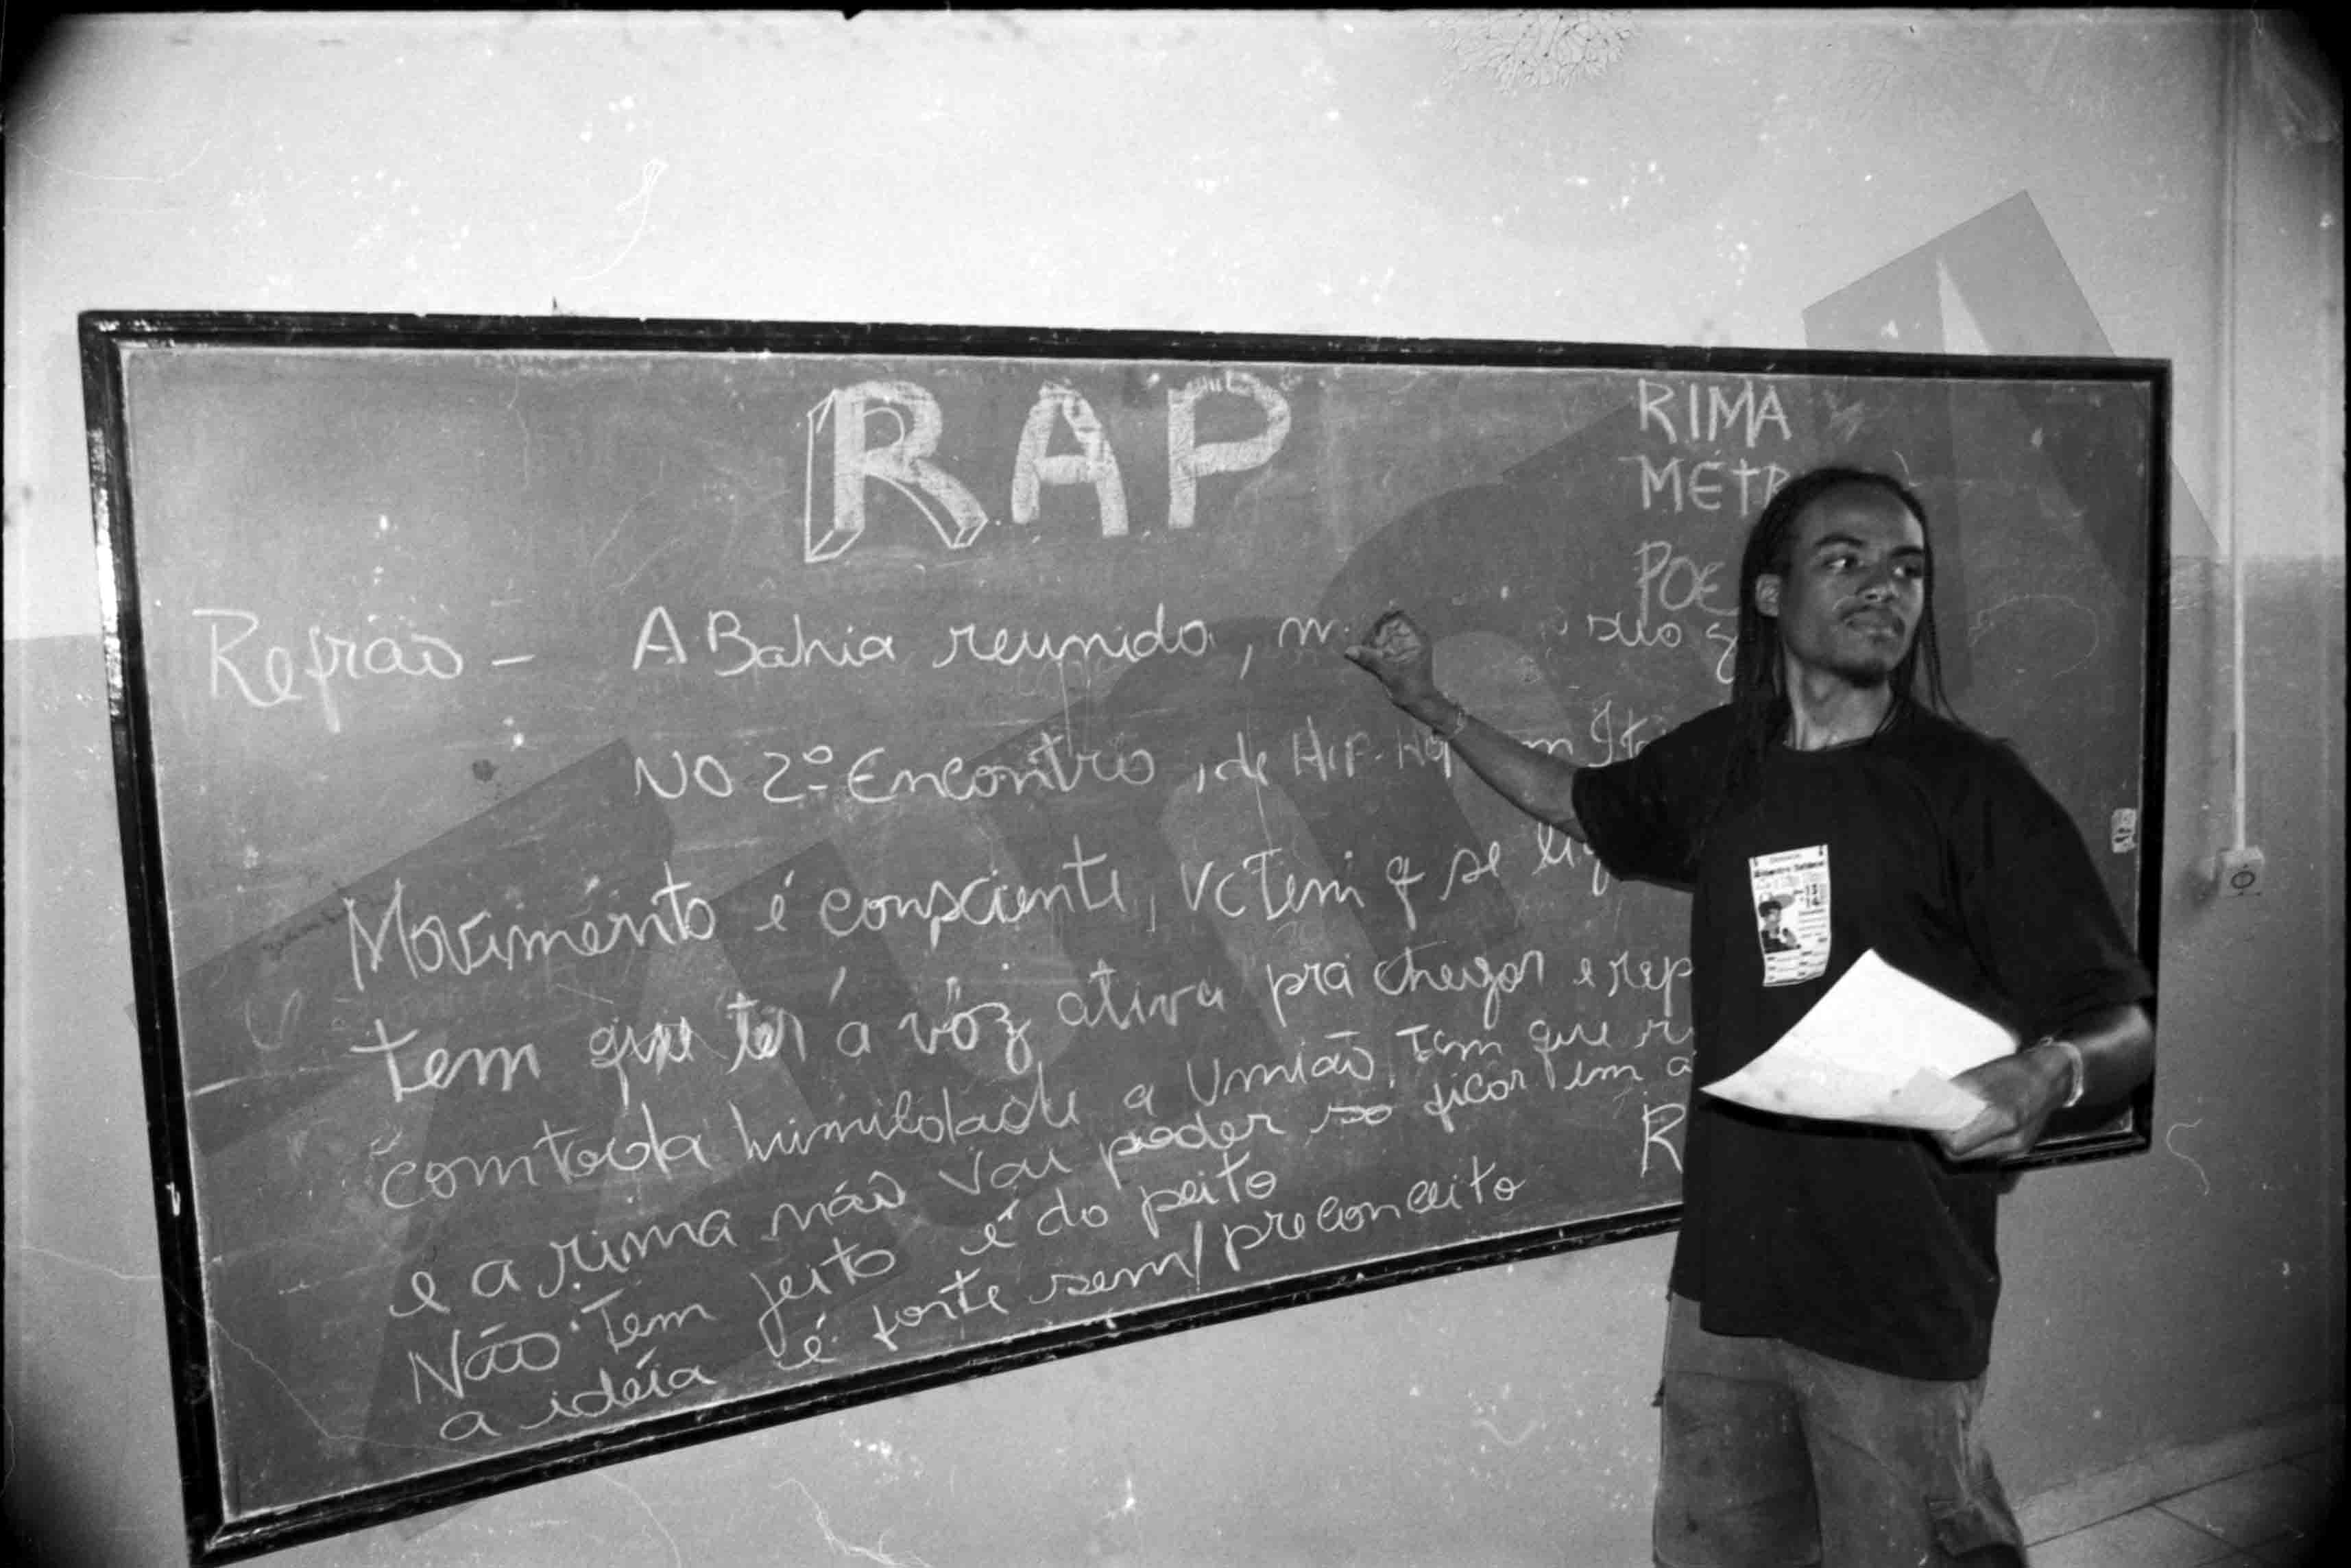 RAP
RIMA
MÉTR
POE
Refrão - A Bahia reunida, suo
NO 2º Encontro, de HIP-HOP em
Movimento é consciente, Vc Tem q se lig
tem que ter a voz ativa pra chegar e rep
com toda humildade a União, Tem que
e a rima não vai poder só ficar em a
R
Não Tem jeito é do peito
a idéia é forte sem preconceito